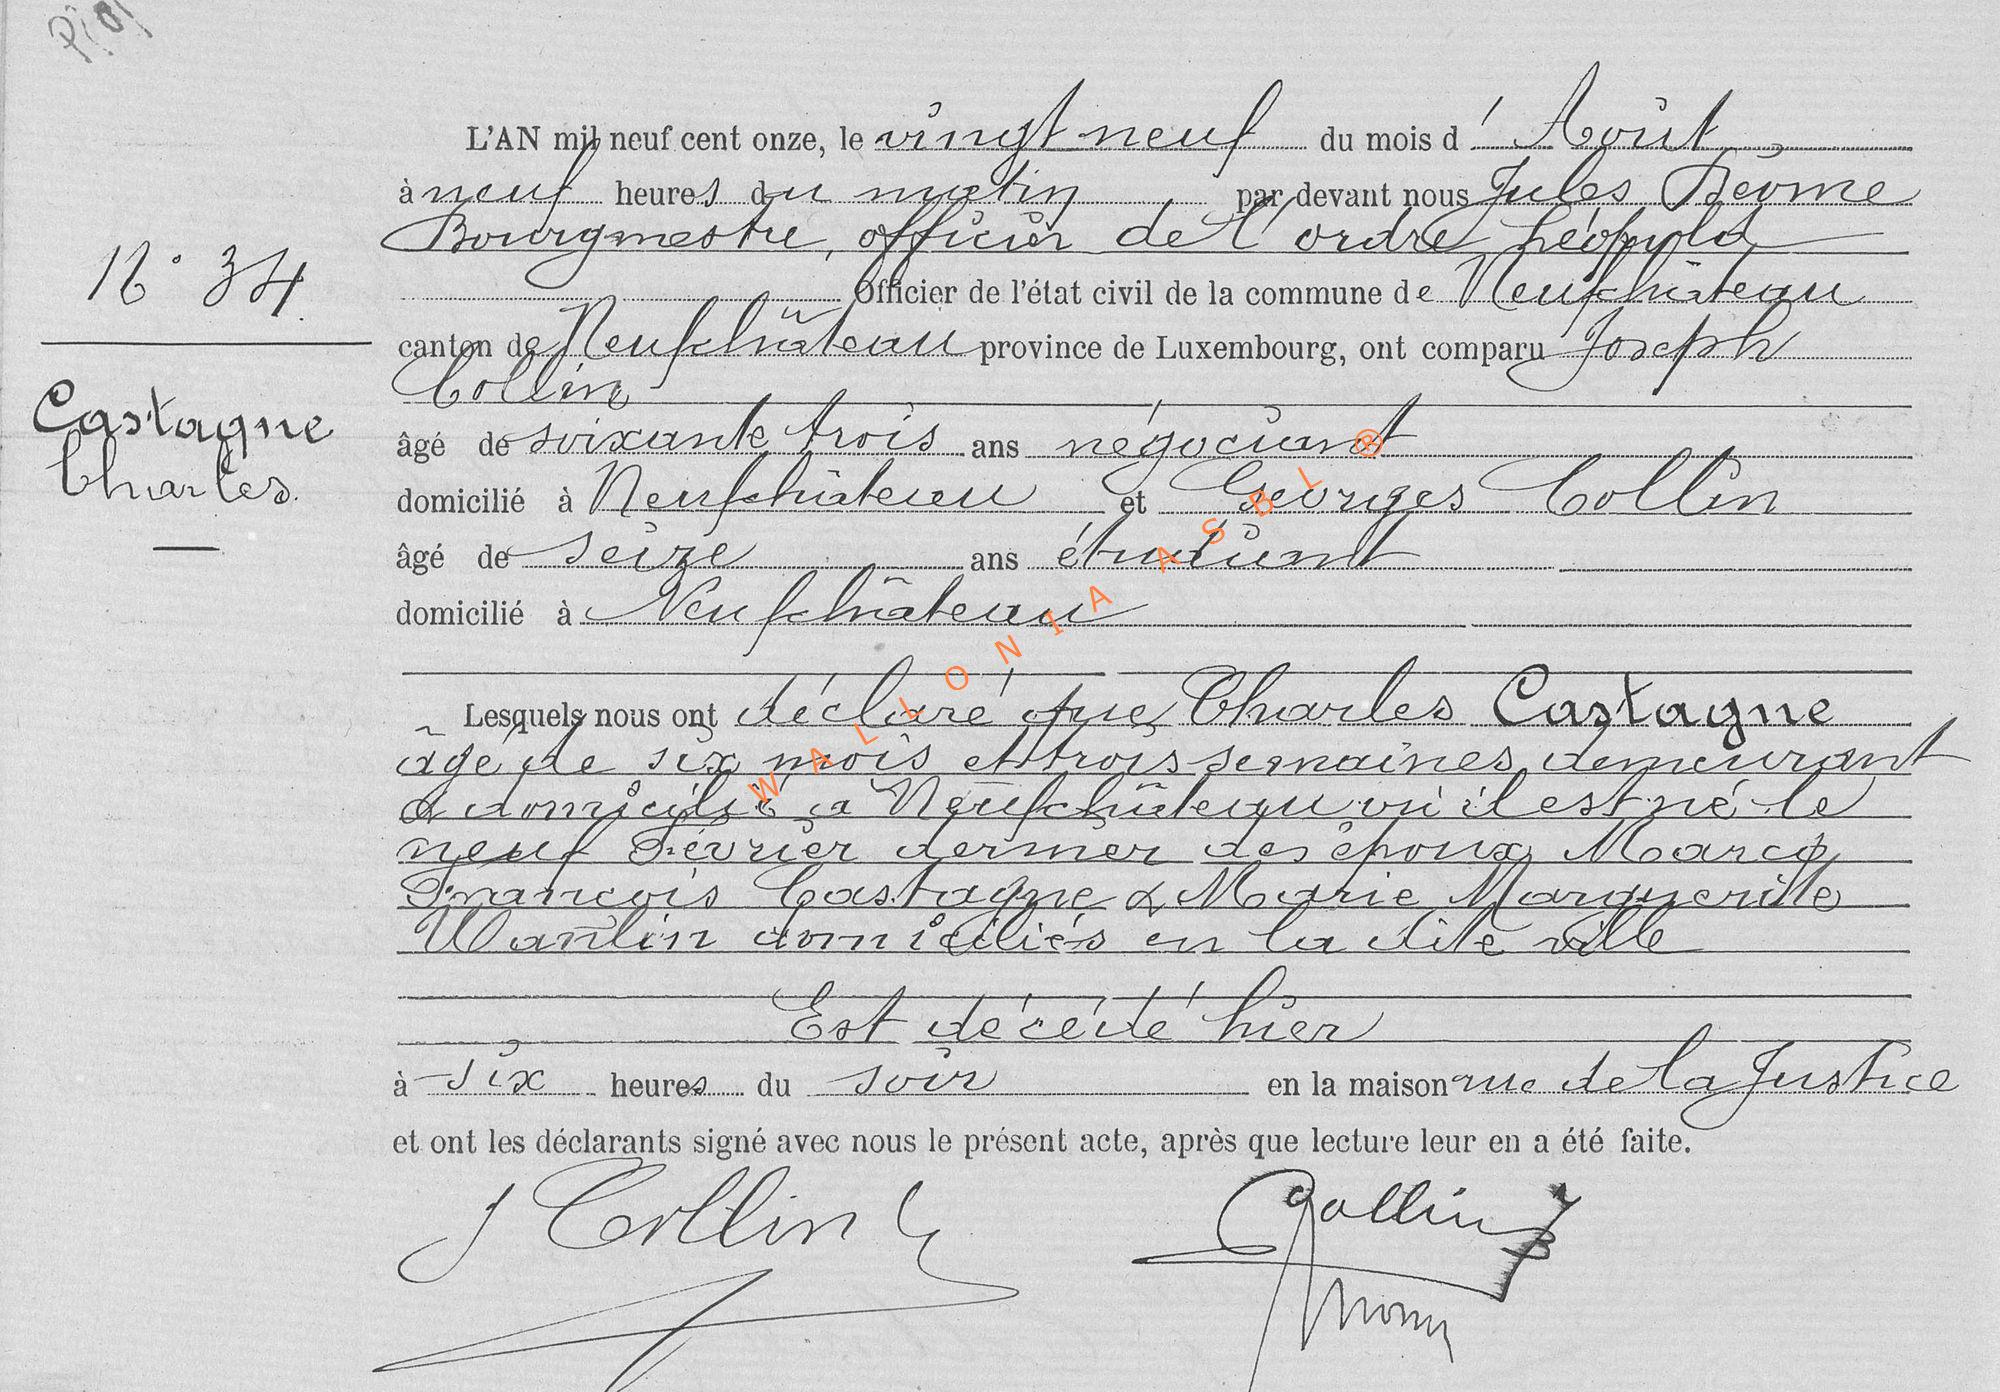 L'AN mil neuf cent onze, le vingt neuf du mois d' Août
à neuf heures du matin par devant nous Jules Déome
Bourgmestre, officier de l'ordre Léopold
Officier de l'état civil de la commune de Neufchâteau
N° 34
canton de Neufchâteau province de Luxembourg, ont comparu Joseph
Collin
Castagne
Charles.
âgé de soixante trois ans négociant
domicilié à Neufchâteau et Georges Collin
âgé de seize ans étudiant
domicilié à Neufchâteau
WALLONIA ASBL ®
Lesquels nous ont déclaré que Charles Castagne
âgé de six mois et trois semaines demeurant
& domicilié à Neufchâteau où il est né le
neuf Février dernier des époux Marcq
François Castagne & Marie Marguerite
Wanlin domiciliés en la dite ville
Est décédé hier
à six heures du soir en la maison rue de la Justice
et ont les déclarants signé avec nous le présent acte, après que lecture leur en a été faite.
J Collin G Collin